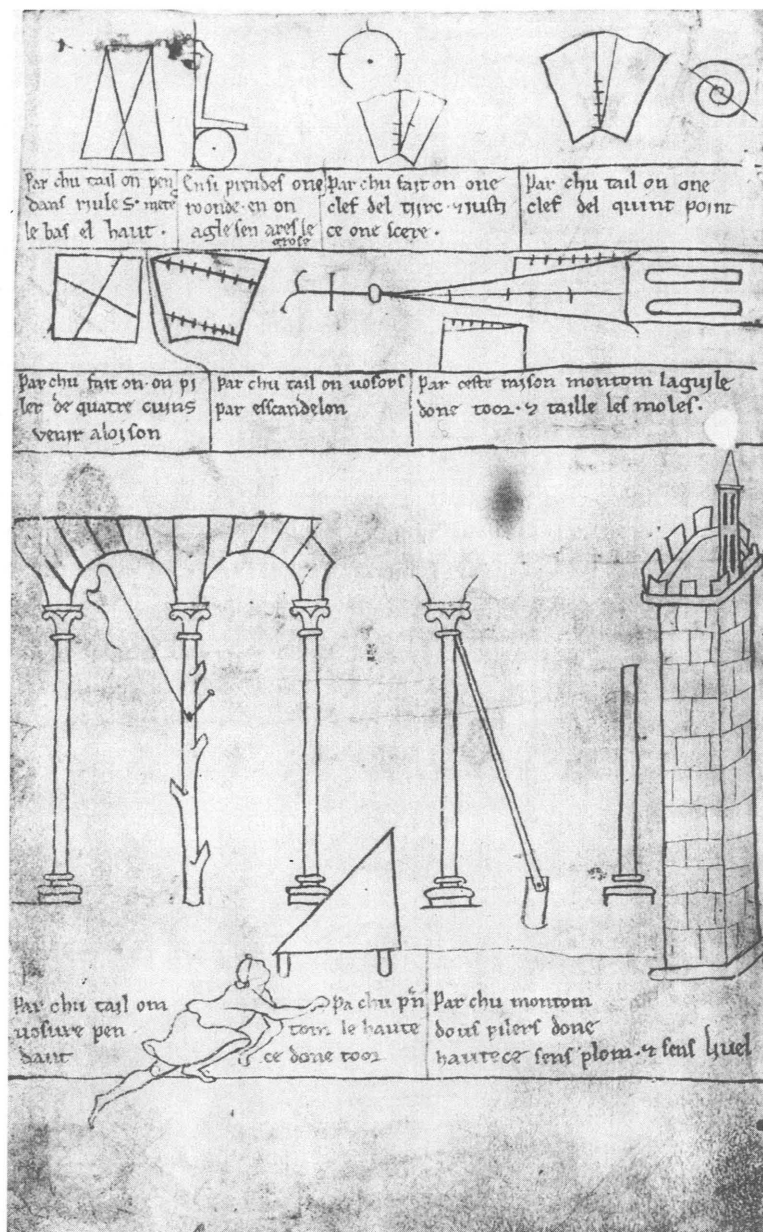 Par chu tail on pen
dans riules · mete
le bas el haut ·
Ensi prendes one
roonde · en on
agle sen ares le
grose
Par chu fait on one
clef del tirc · & iusti
ce one scere ·
Par chu tail on one
clef del quint point
Par chu fait on · on pi
ler de quatre cuins
venir aloison
Par chu tail on vosors
par esscandelon
Par ceste raison montom laguile
done toor · & taille les moles ·
Par chu tail om
vosure pen
dant
Pa chu pñ
tom le haute
ce done toor
Par chu montom
dous pilers done
hautece sens plom · & sens livel